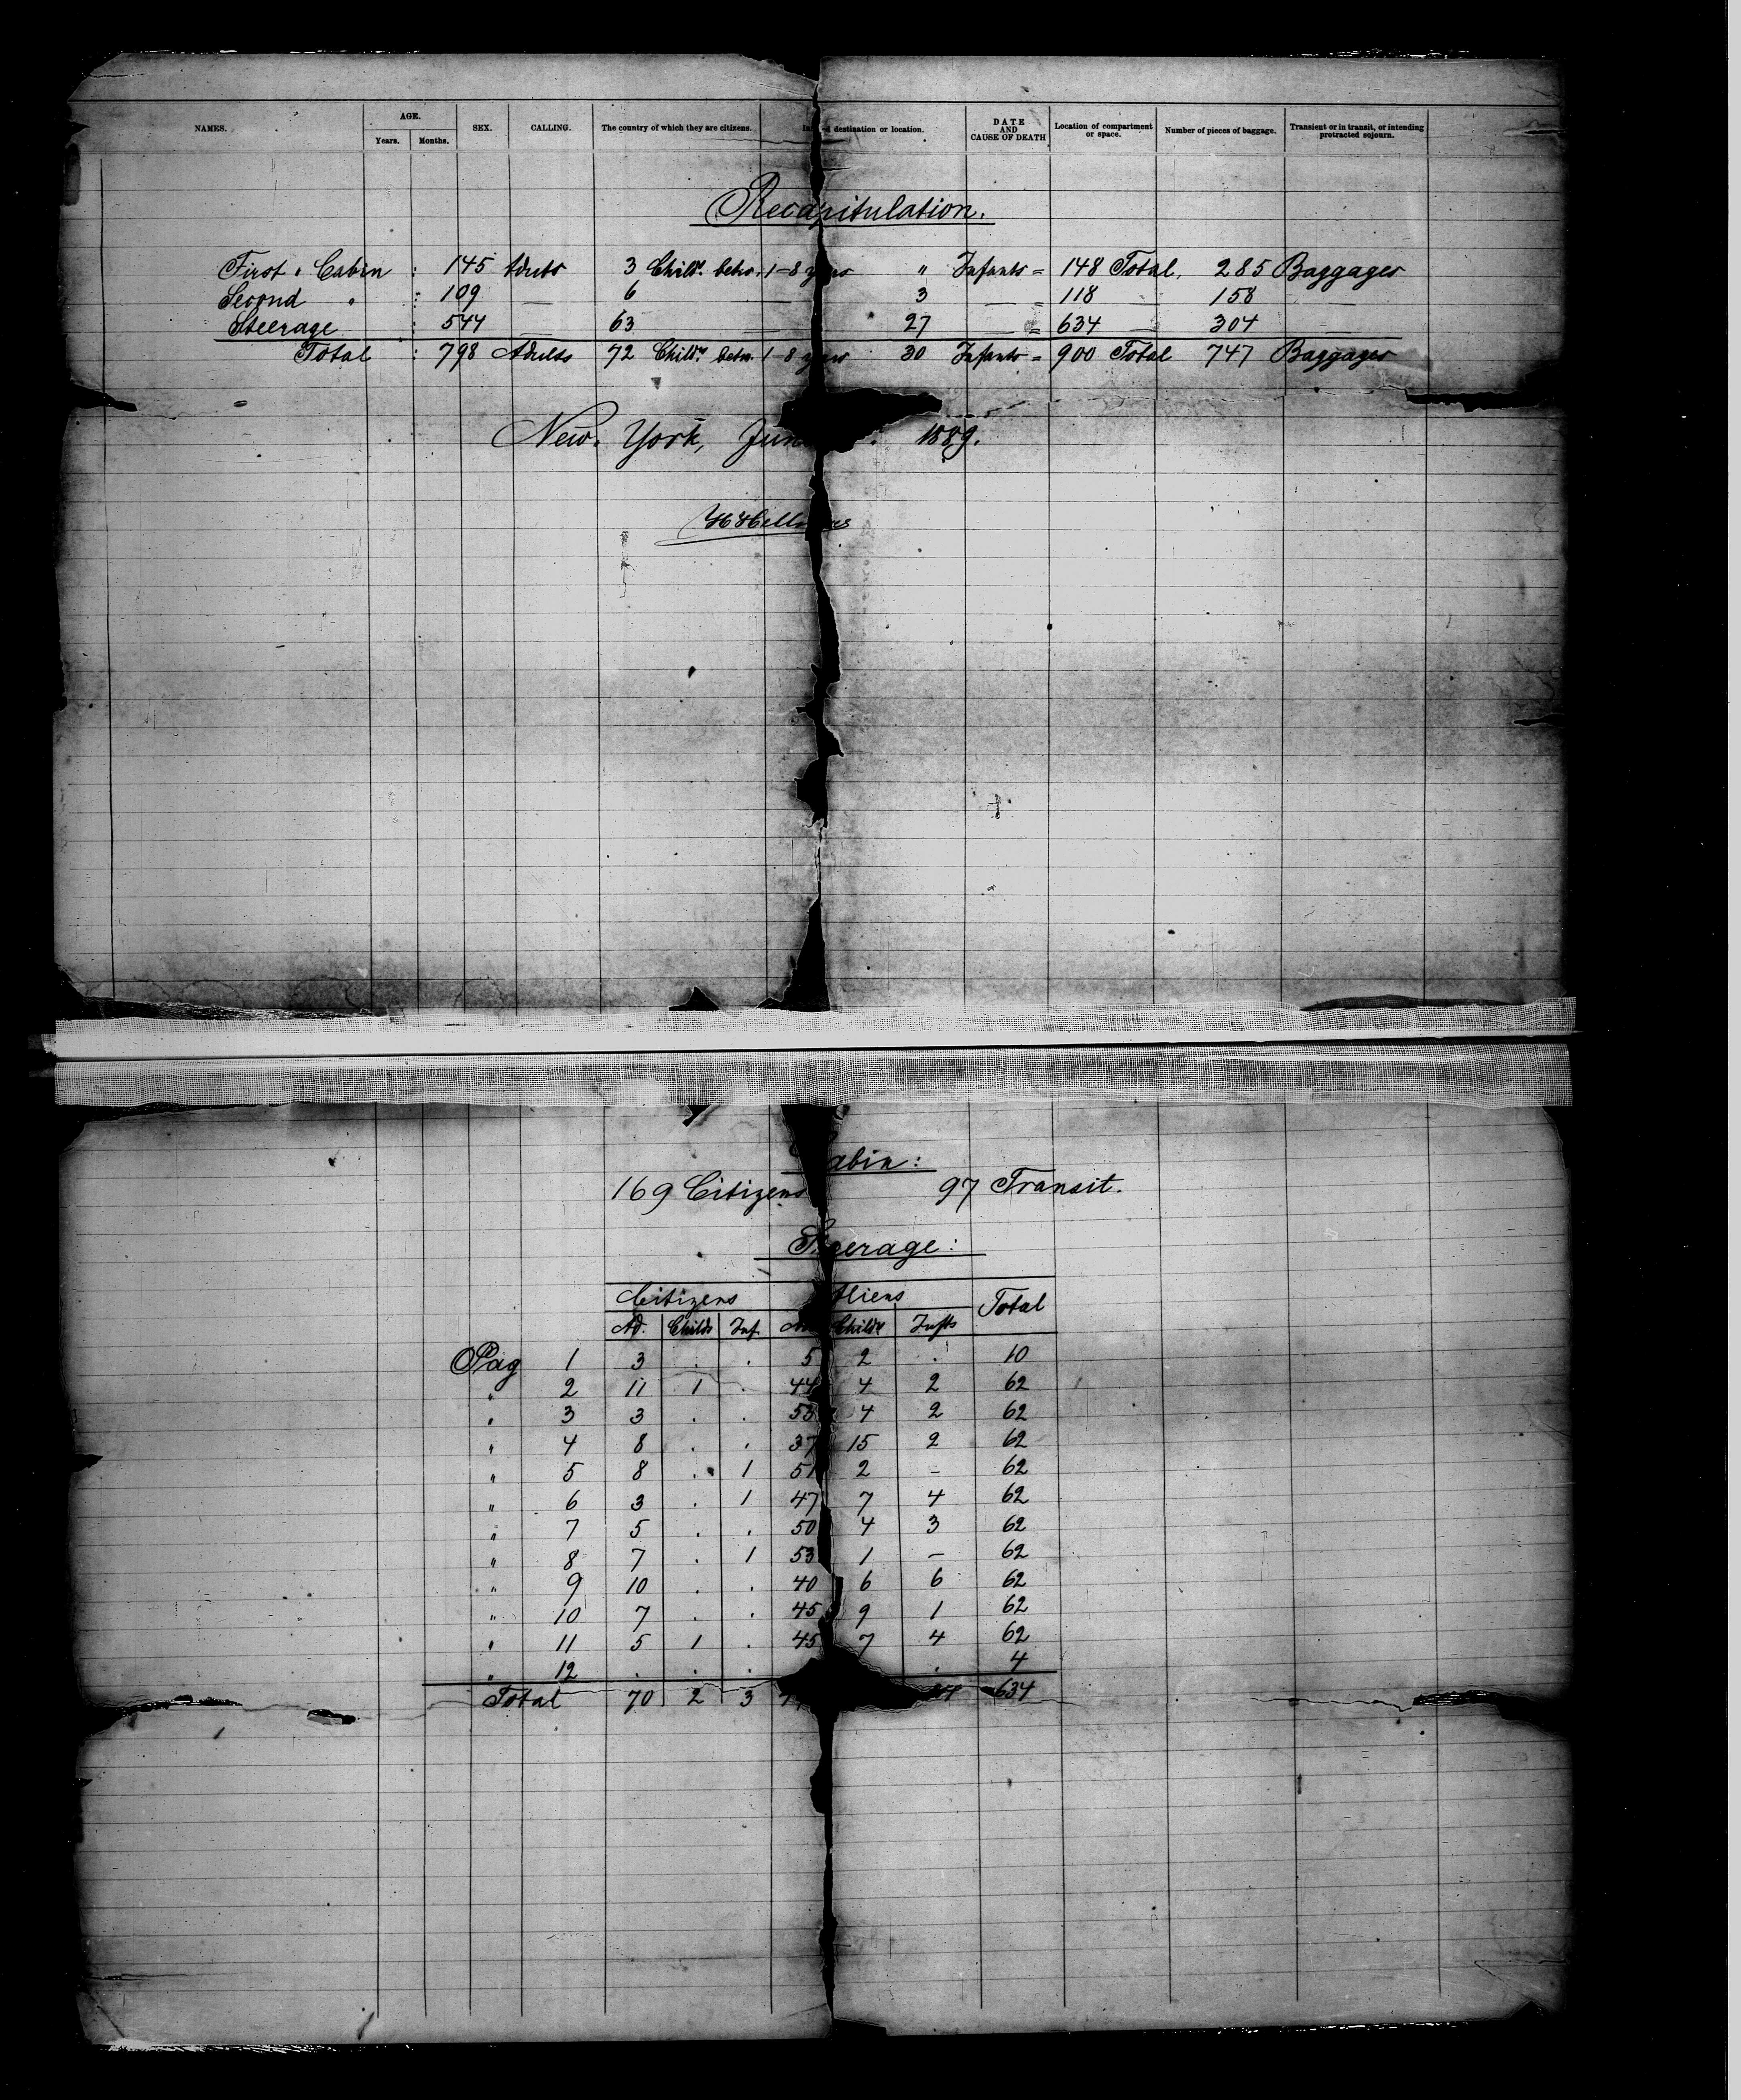 NAMES. AGE. Years. Months. SEX. CALLING. The country of which they are citizens. destination or location. DATE AND CAUSE OF DEATH Location of compartment or space. Number of pieces of baggage. Transient or in transit, or intending protracted sojourn.
Recapitulation.
First " Cabin : 145 Adults 3 Childr. betw. 1-8 years " Infants = 148 Total. 285 Baggages
Second " : 109 — 6 — 3 — = 118 — 158 —
Steerage : 544 — 63 — 27 — = 634 — 304 —
Total : 798 Adults 72 Childr. betw. 1-8 years 30 Infants = 900 Total 747 Baggages
New York, 1889.
Cabin:
169 Citizens 97 Transit.
Steerage:
Citizens Aliens Total
Ad. Childr Inf. Ad. Childr Infts
Pag 1 3 . . 5 2 . 10
" 2 11 1 . 44 4 2 62
" 3 3 . . 53 4 2 62
" 4 8 . . 37 15 2 62
" 5 8 . 1 51 2 - 62
" 6 3 . 1 47 7 4 62
" 7 5 . . 50 4 3 62
" 8 7 . 1 53 1 - 62
" 9 10 . . 40 6 6 62
" 10 7 . . 45 9 1 62
" 11 5 1 . 45 7 4 62
" 12 . . . . 4
Total 70 2 3 634